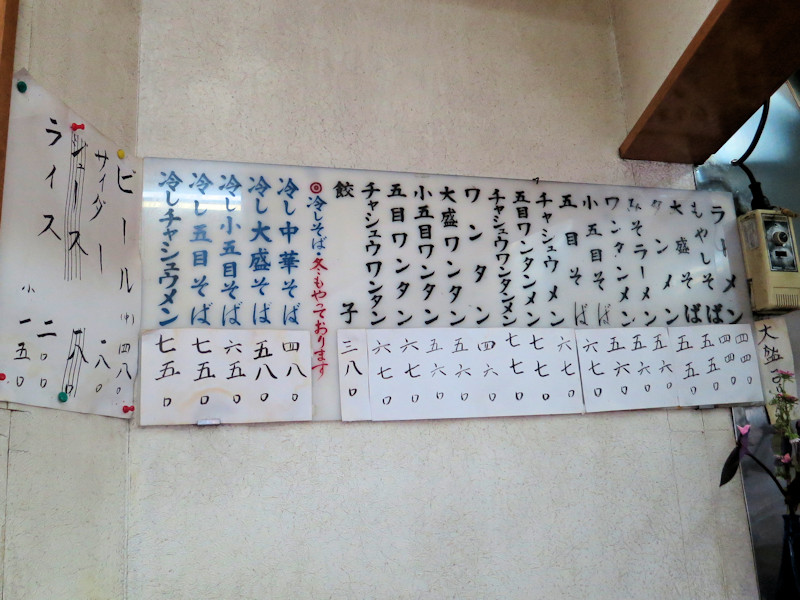 ラーメン 四四〇
もやしそば 四四〇
大盛そば 五五〇
タンメン 五五〇
みそラーメン
ワンタンメン
小五目そば
五目そば 六七〇
チャシュウメン 六七〇
五目ワンタンメン 七七〇
チャシュウワンタンメン 七七〇
ワンタン 四六〇
大盛ワンタン 五六〇
小五目ワンタン 五六〇
五目ワンタン 六七〇
チャシュウワンタン 六七〇
餃子 三八〇
◎冷しそば・冬もやっております
冷し中華そば 四八〇
冷し大盛そば 五八〇
冷し小五目そば 六五〇
冷し五目そば 七五〇
冷しチャシュウメン 七五〇
ビール (中) 四八〇
サイダー 一八〇
ジュース
ライス 二〇〇
小 一五〇
大盛